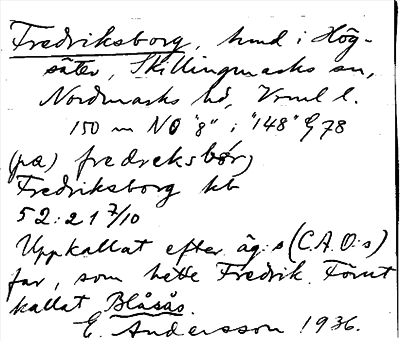 Fredriksborg, hmd i Hög-
säter, Skillingmarks sn,
Nordmarks hd, Vrml l.
150 m NO "8" i "148" G 78
(pæ) fredreksbór,
Fredriksborg hb
52:21 7/10
Uppkallat efter äg:s (C.A.O:s)
far, som hette Fredrik. Förut
kallat Blåsås.
E. Andersson 1936.